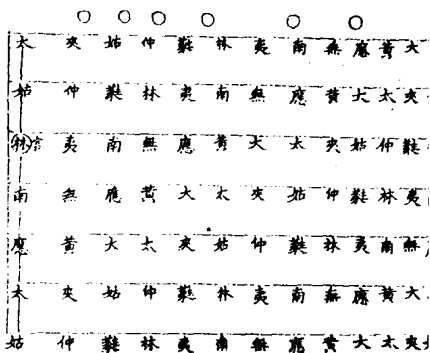 太 夾 姑 仲 蕤 林 夷 南 無 應 黃 大
姑 仲 蕤 林 夷 南 無 應 黃 大 太 夾
林 夷 南 無 應 黃 大 太 夾 姑 仲 蕤
南 無 應 黃 大 太 夾 姑 仲 蕤 林 夷
應 黃 大 太 夾 姑 仲 蕤 林 夷 南 無
太 夾 姑 仲 蕤 林 夷 南 無 應 黃 大
姑 仲 蕤 林 夷 南 無 應 黃 大 太 夾